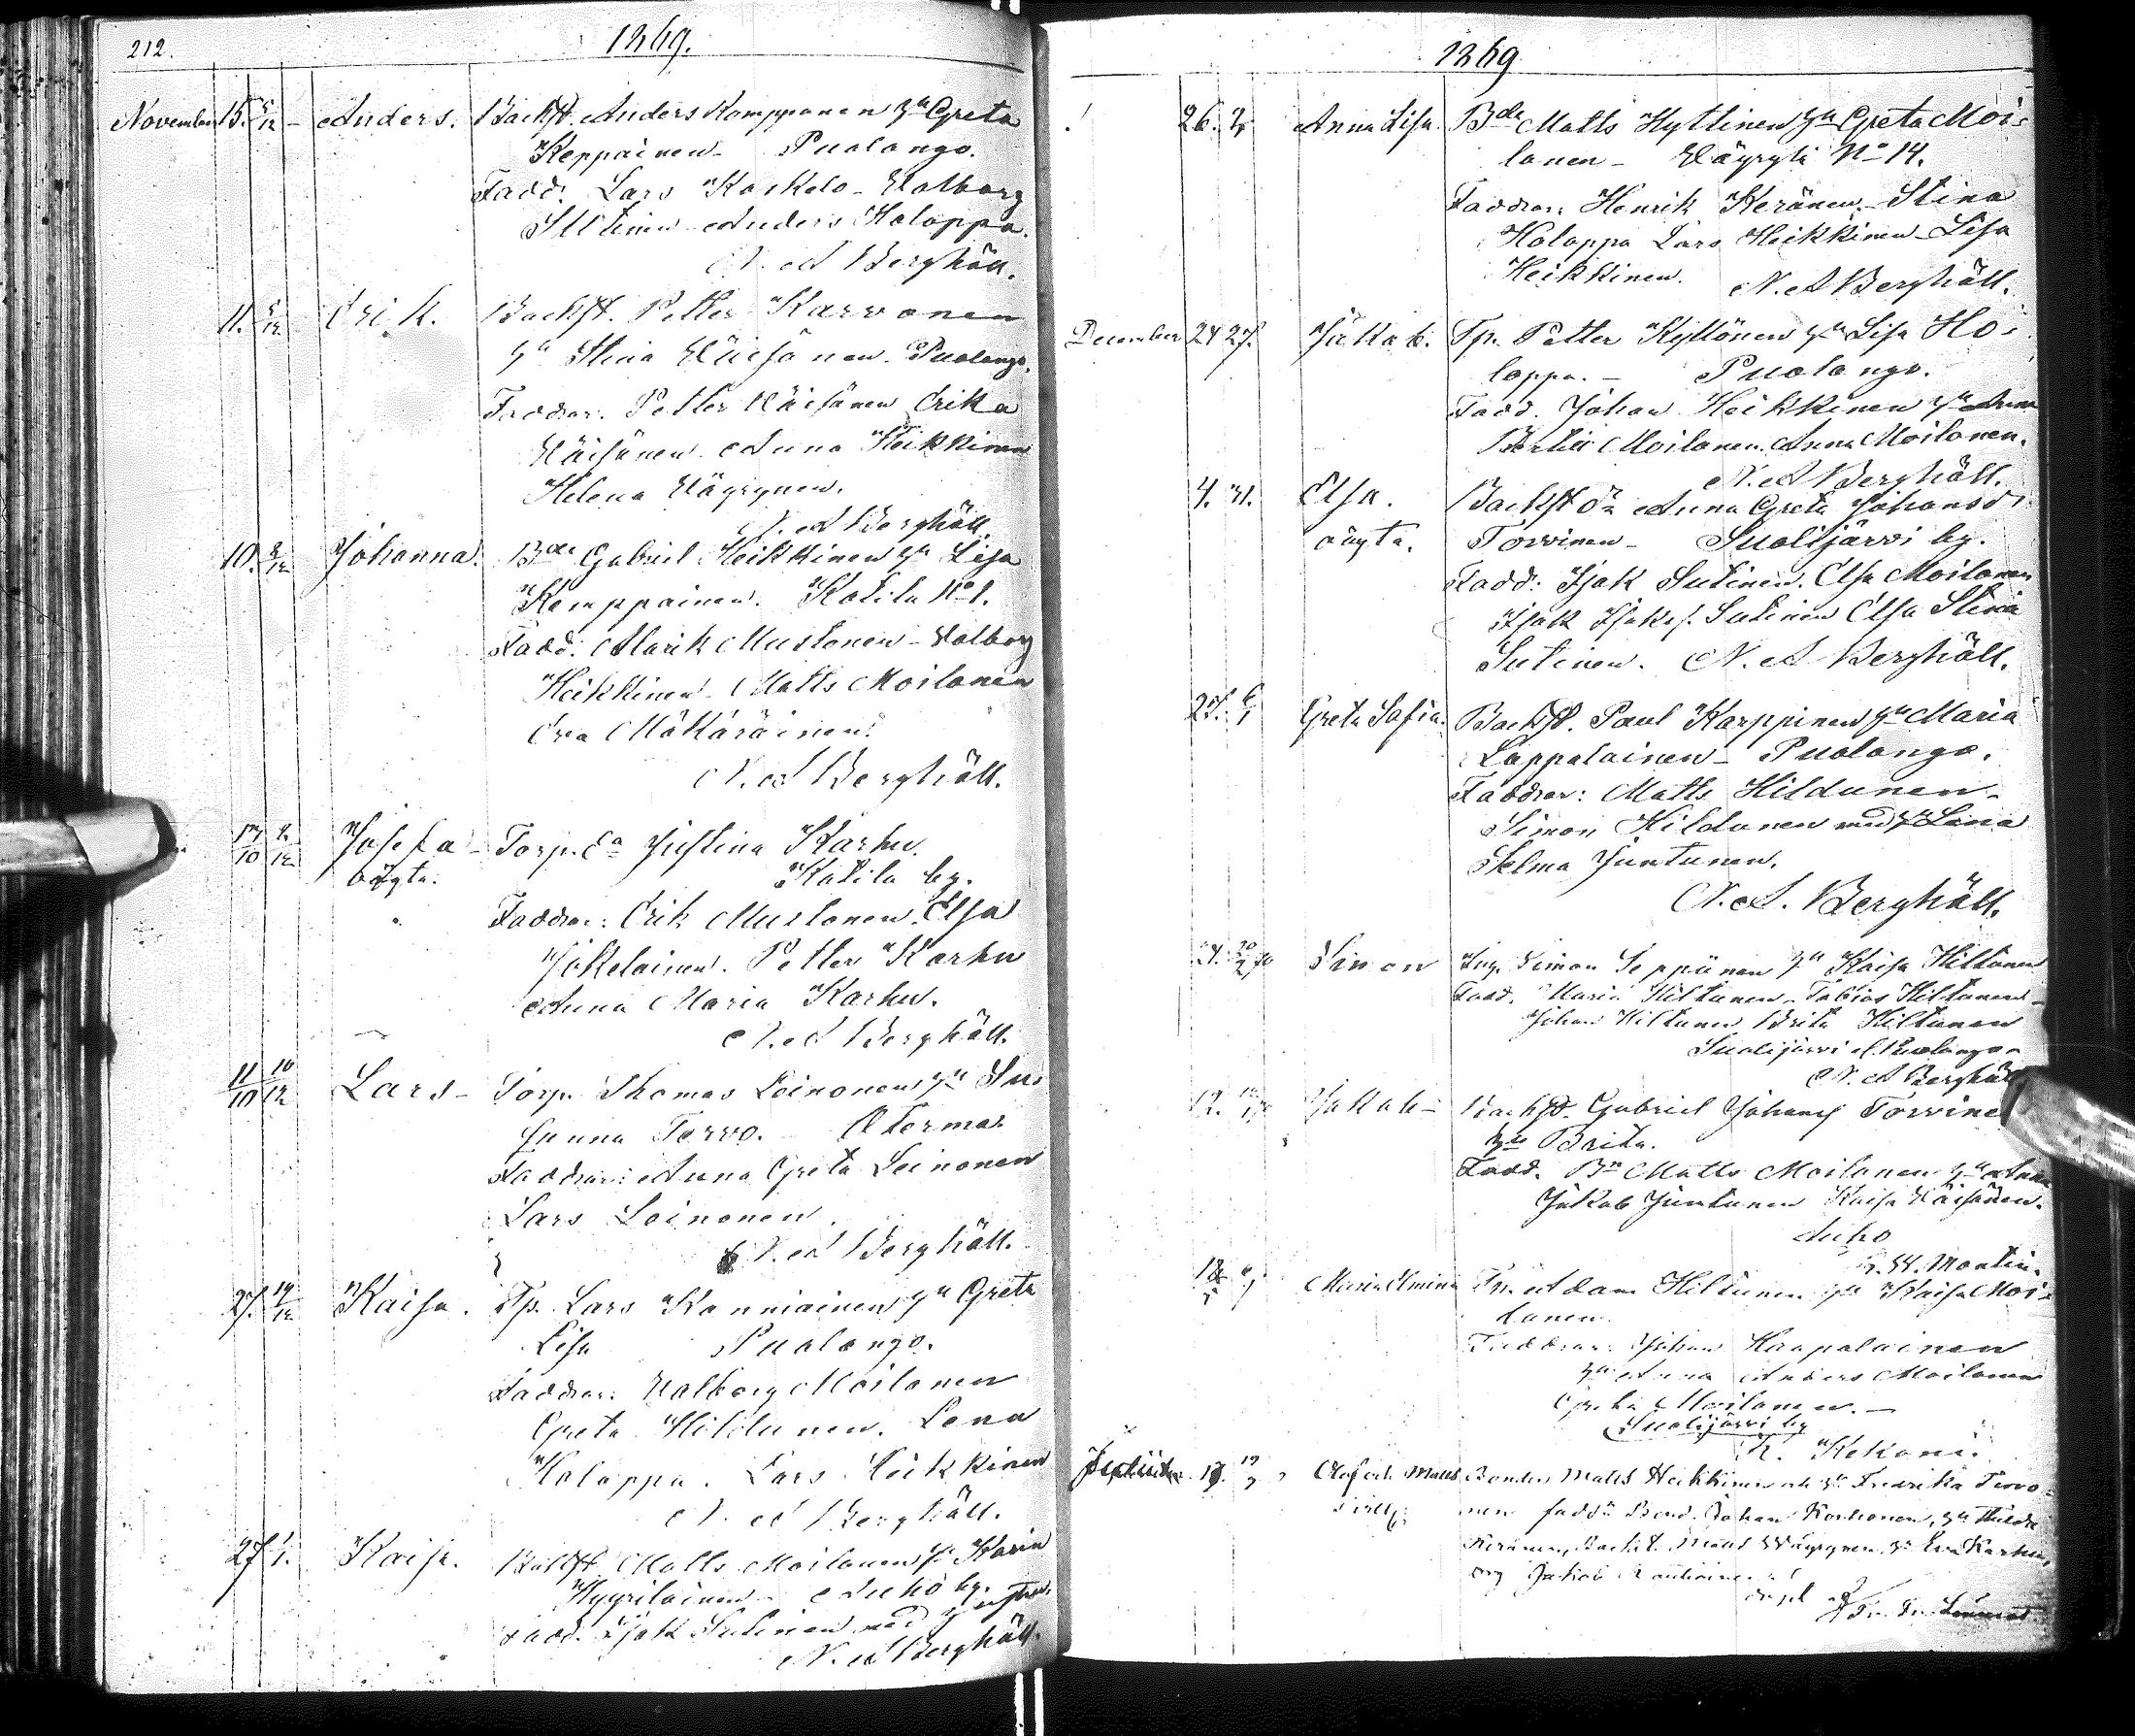 212.
1869.
November 15. 5/12 - Anders. Backst. Anders Komppanen Hu Greta
Keppainen - Puolango.
Fadd. Lars Kaikelo - Walborg
Sutinen Anders Holappa.
N. A Berghäll.
11. 5/12 Erik. Backst. Petter Karvonen
Hu Stina Väisänen. Puolango.
Faddrar. Petter Väisänen Erika
Väisänen. Anna Heikkinen
Helena Väyrynen.
N. A Berghäll.
10. /12 Johanna. Bde Gabriel Heikkinen Hu Lisa
Kemppainen. Kotila No 1.
Fadd. Marik Mustonen - Walborg
Heikkinen. Matts Moilanen
Eva Mäkäräinen.
N. A Berghäll.
/10 /12 Josefa - Torp. da Justina Karhu.
oägta. Kotila by.
Faddrar: Erik Mustonen. Elsa
Jokelainen. Petter Karhu
Anna Maria Karhu.
N. A Berghäll.
11/10 10/12 Lars - Torp. Thomas Leinonen Hu Su-
sanna Tervo. Otermas
Faddrar: Anna Greta Leinonen
Lars Leinonen.
N. A Berghäll.
27. 19/12 Kaisa. Tp. Lars Kanniainen Hu Greta
Lisa Puolango.
Faddrar: Walborg Moilanen
Greta Hildunen. Lena
Holappa. Lars Heikkinen
N. A Berghäll.
27 Kaisa. Backst Matts Moilanen Hu Karin
Kyyriläinen - Auho by.
Fadd. Isak Sutinen med
N. A Berghäll.
1869
26. Anna Lisa. Bde Matts Hyttinen Hu Greta Moi-
lanen - Väyrylä No 14.
Faddrar: Henrik Keränen. Stina
Holappa Lars Heikkinen - Lisa
Heikkinen. N. A Berghäll.
December 24 27. Jakob. Tp. Petter Kyllönen Hu Lisa Ho-
loppa. - Puolango.
Fadd. Johan Heikkinen Hu Anna
Bertil Moilanen. Anna Moilanen.
N. A Berghäll.
4. 31. Elsa. Backst Anna Greta Johansdr
oägta. Torvinen - Suolijärvi by.
Fadd: Isak Sutinen. Elsa Moilanen
Isak Isaks. Sutinen Elsa Stina
Sutinen. N. A Berghäll.
27. 6/1 Greta Sofia. Backst. Paul Karppinen Hu Maria
Lappalainen - Puolango.
Faddrar: Matts Hildunen -
Simon Hildunen med Hu Lena
Selma Juntunen.
N. A. Berghäll.
Simon Simon Seppänen Hu Kaisa Hiltunen
Fadd. Maria Hiltunen - Tobias Hiltunen -
Johan Hiltunen Brita Hiltunen
Suolijärvi Puolango
N. A Berghäll
12. Jakob - Backst. Gabriel Johans Torvinen
Hu Brita.
Fadd. Bn Matts Moilanen Hu Anna
Jakob Juntunen Kaisa Väisänen.
Auho
Montin.
18 Maria Elmina Adam Hiltunen Hu Kaisa Moi-
lanen.
Faddrar: Johan Haapalainen
Hu Anna Anders Moilanen
Greta Moilanen. -
Suolijärvi by
K. Kekoni.
17. Olof och Matts Bonden Matts Heikkinen och Hu Fredrika Tervo-
nen Johan Korhonen, Hu Hulda
Keränen, Backst. Matts Wäyrynen, Hu Eva Karhu,
Jakob